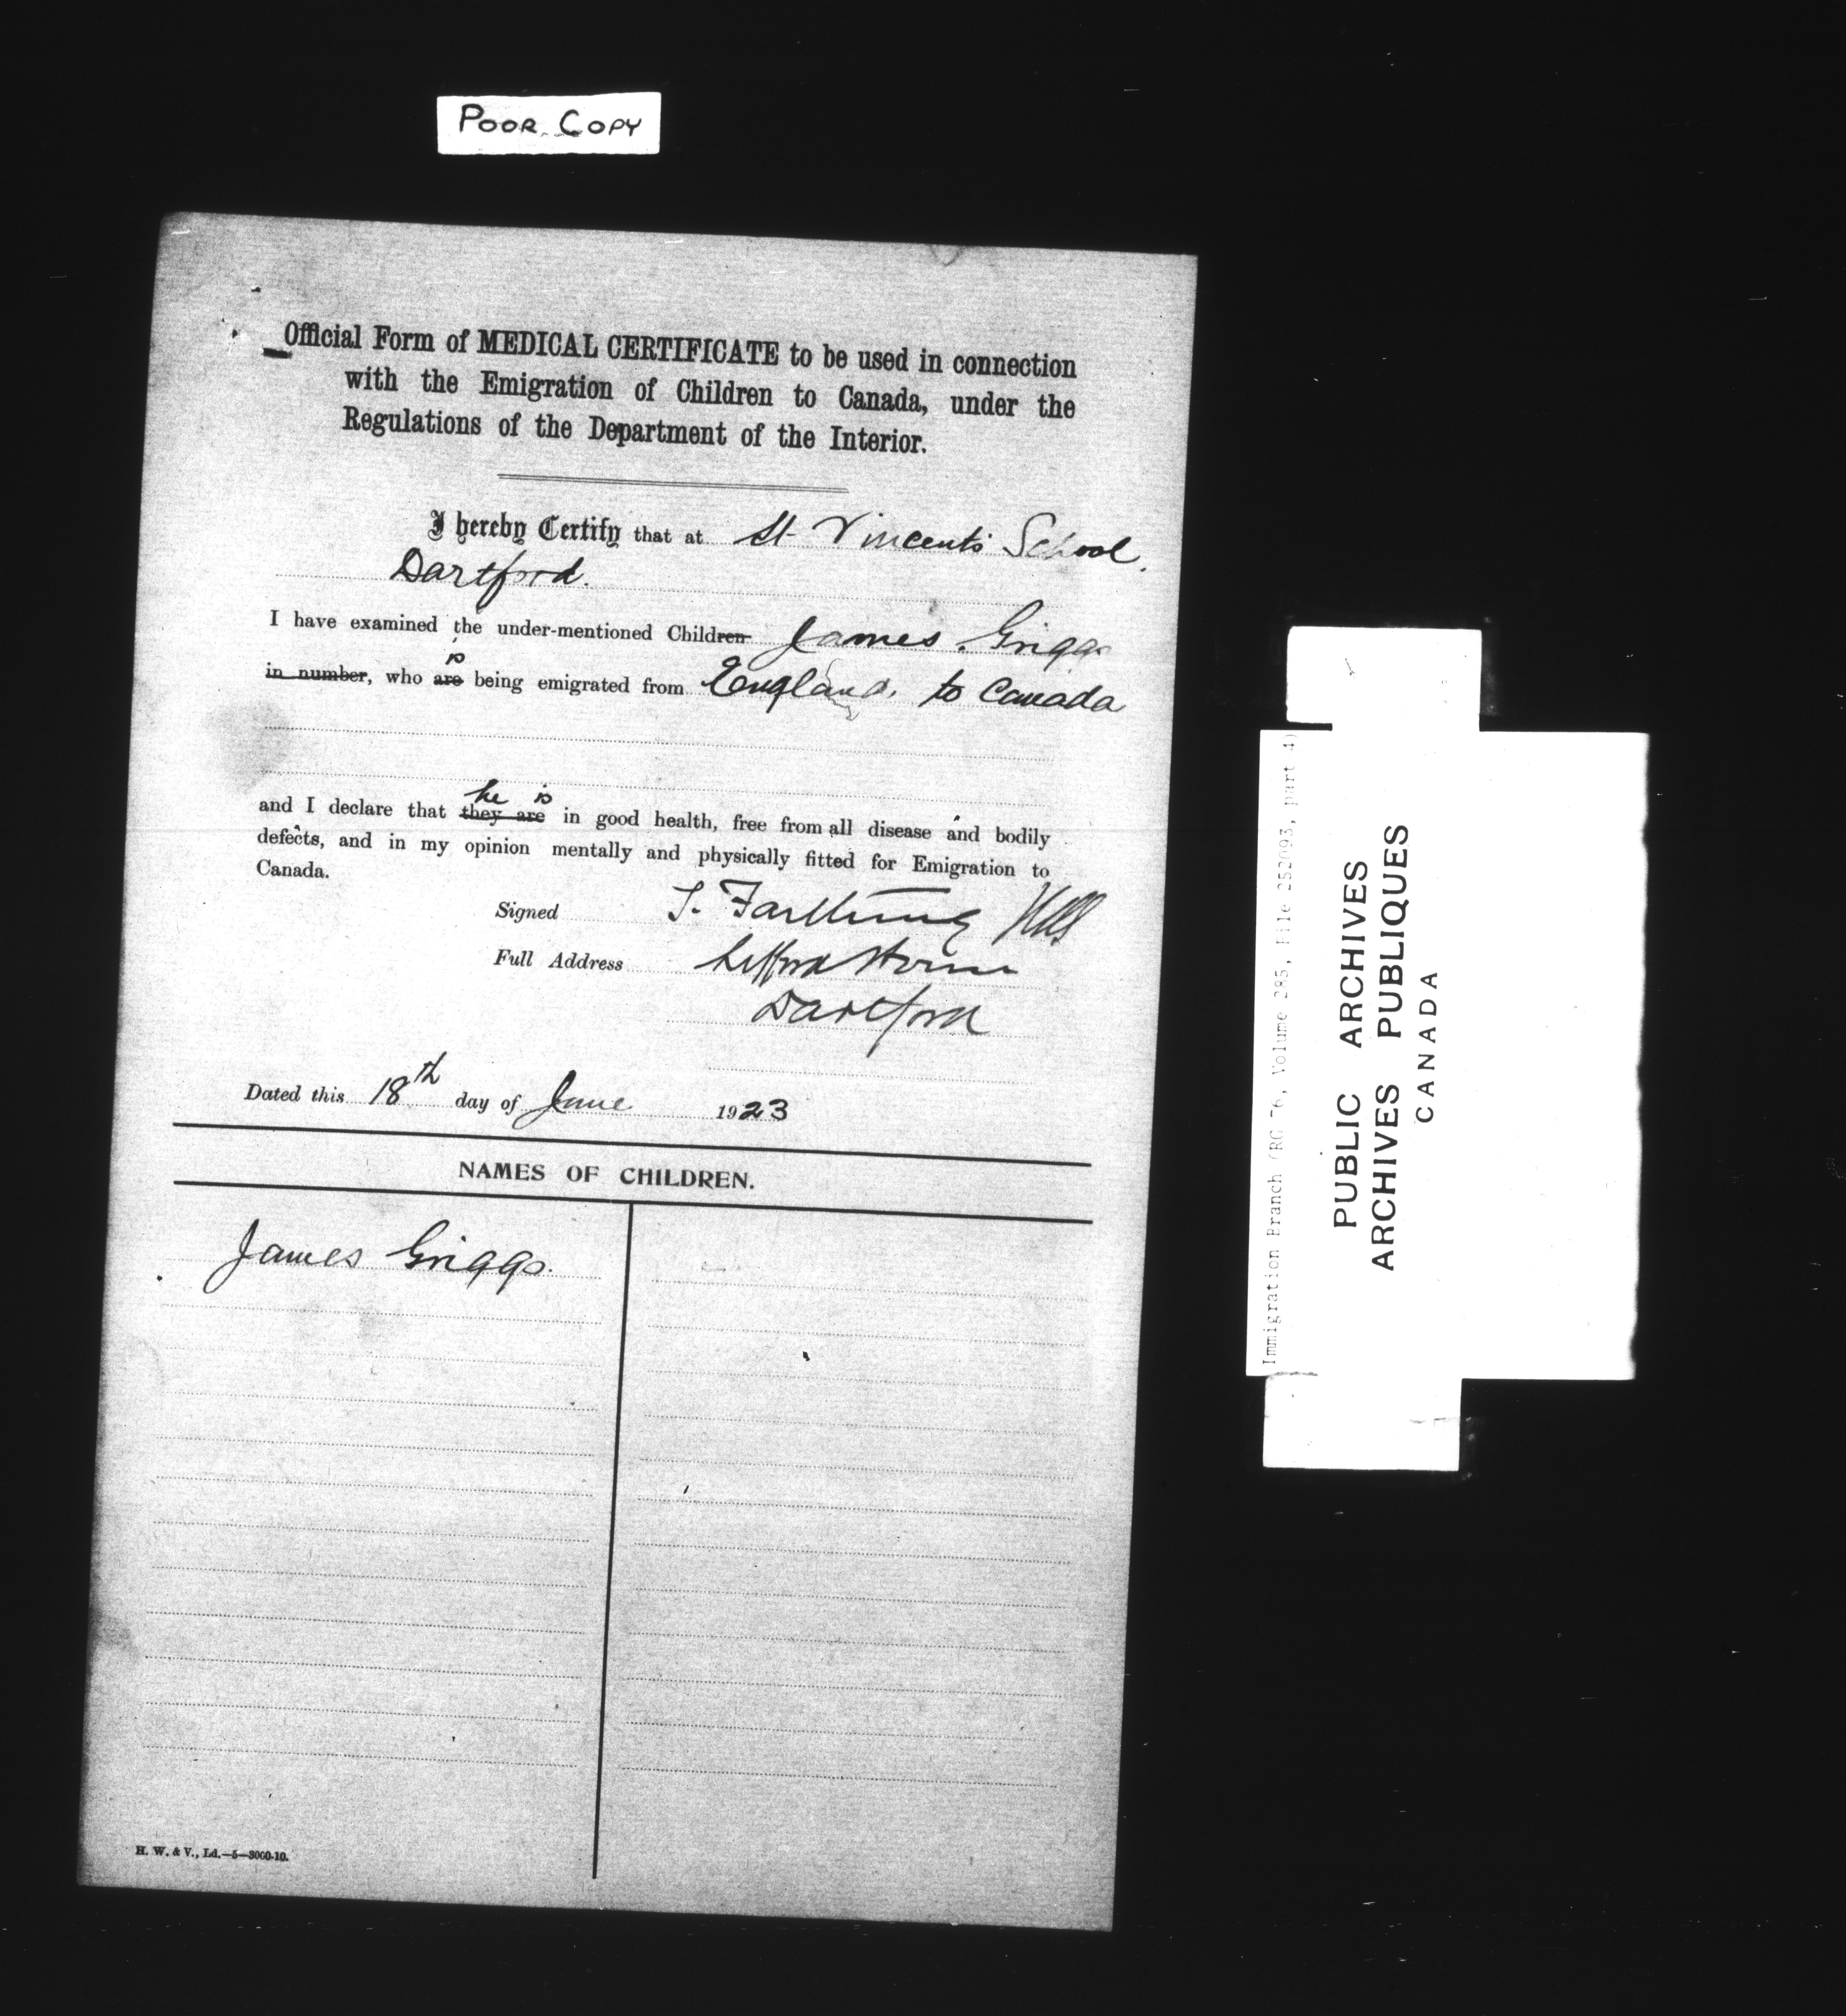 POOR COPY
Official Form of MEDICAL CERTIFICATE to be used in connection
with the Emigration of Children to Canada, under the
Regulations of the Department of the Interior.
I hereby Certify that at St Vincents School,
Dartford.
I have examined the under-mentioned Children James Griggs
is
in number, who are being emigrated from England, to Canada
he is
and I declare that they are in good health, free from all disease and bodily
defects, and in my opinion mentally and physically fitted for Emigration to
Canada.
Signed T. Farthing
Full Address
Dartford
Dated this 18th day of June 1923
NAMES OF CHILDREN.
James Griggs.
H. W. & V., Ld.—5—3000-10.
Immigration Branch (RG 76, Volume 285, File 252093, part 4)
PUBLIC ARCHIVES
ARCHIVES PUBLIQUES
CANADA